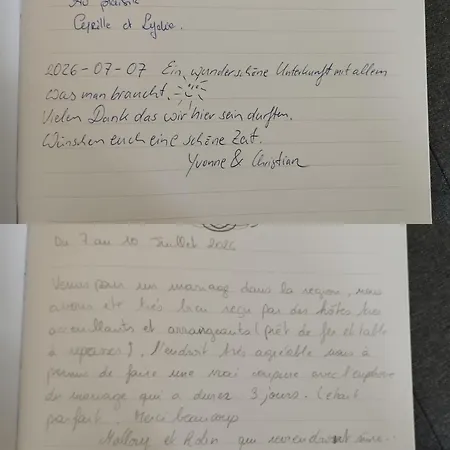 Au plaisir
Cyrille et Lydie.
2026-07-07 Ein wunderschöne Unterkunft mit allem
was man braucht.
Vielen Dank das wir hier sein durften.
Wünschen euch eine schöne Zeit.
Yvonne & Christian
Du 7 au 10 Juillet 2026
Venus pour un mariage dans la région, nous
avons été très bien reçu par des hôtes très
accueillants et arrangeants (prêt de fer et table
à repasser). L'endroit très agréable nous a
permis de faire une vrai coupure avec l'euphorie
du mariage qui a duré 3 jours. C'était
parfait. Merci beaucoup
Mallory et Robin qui reviendront